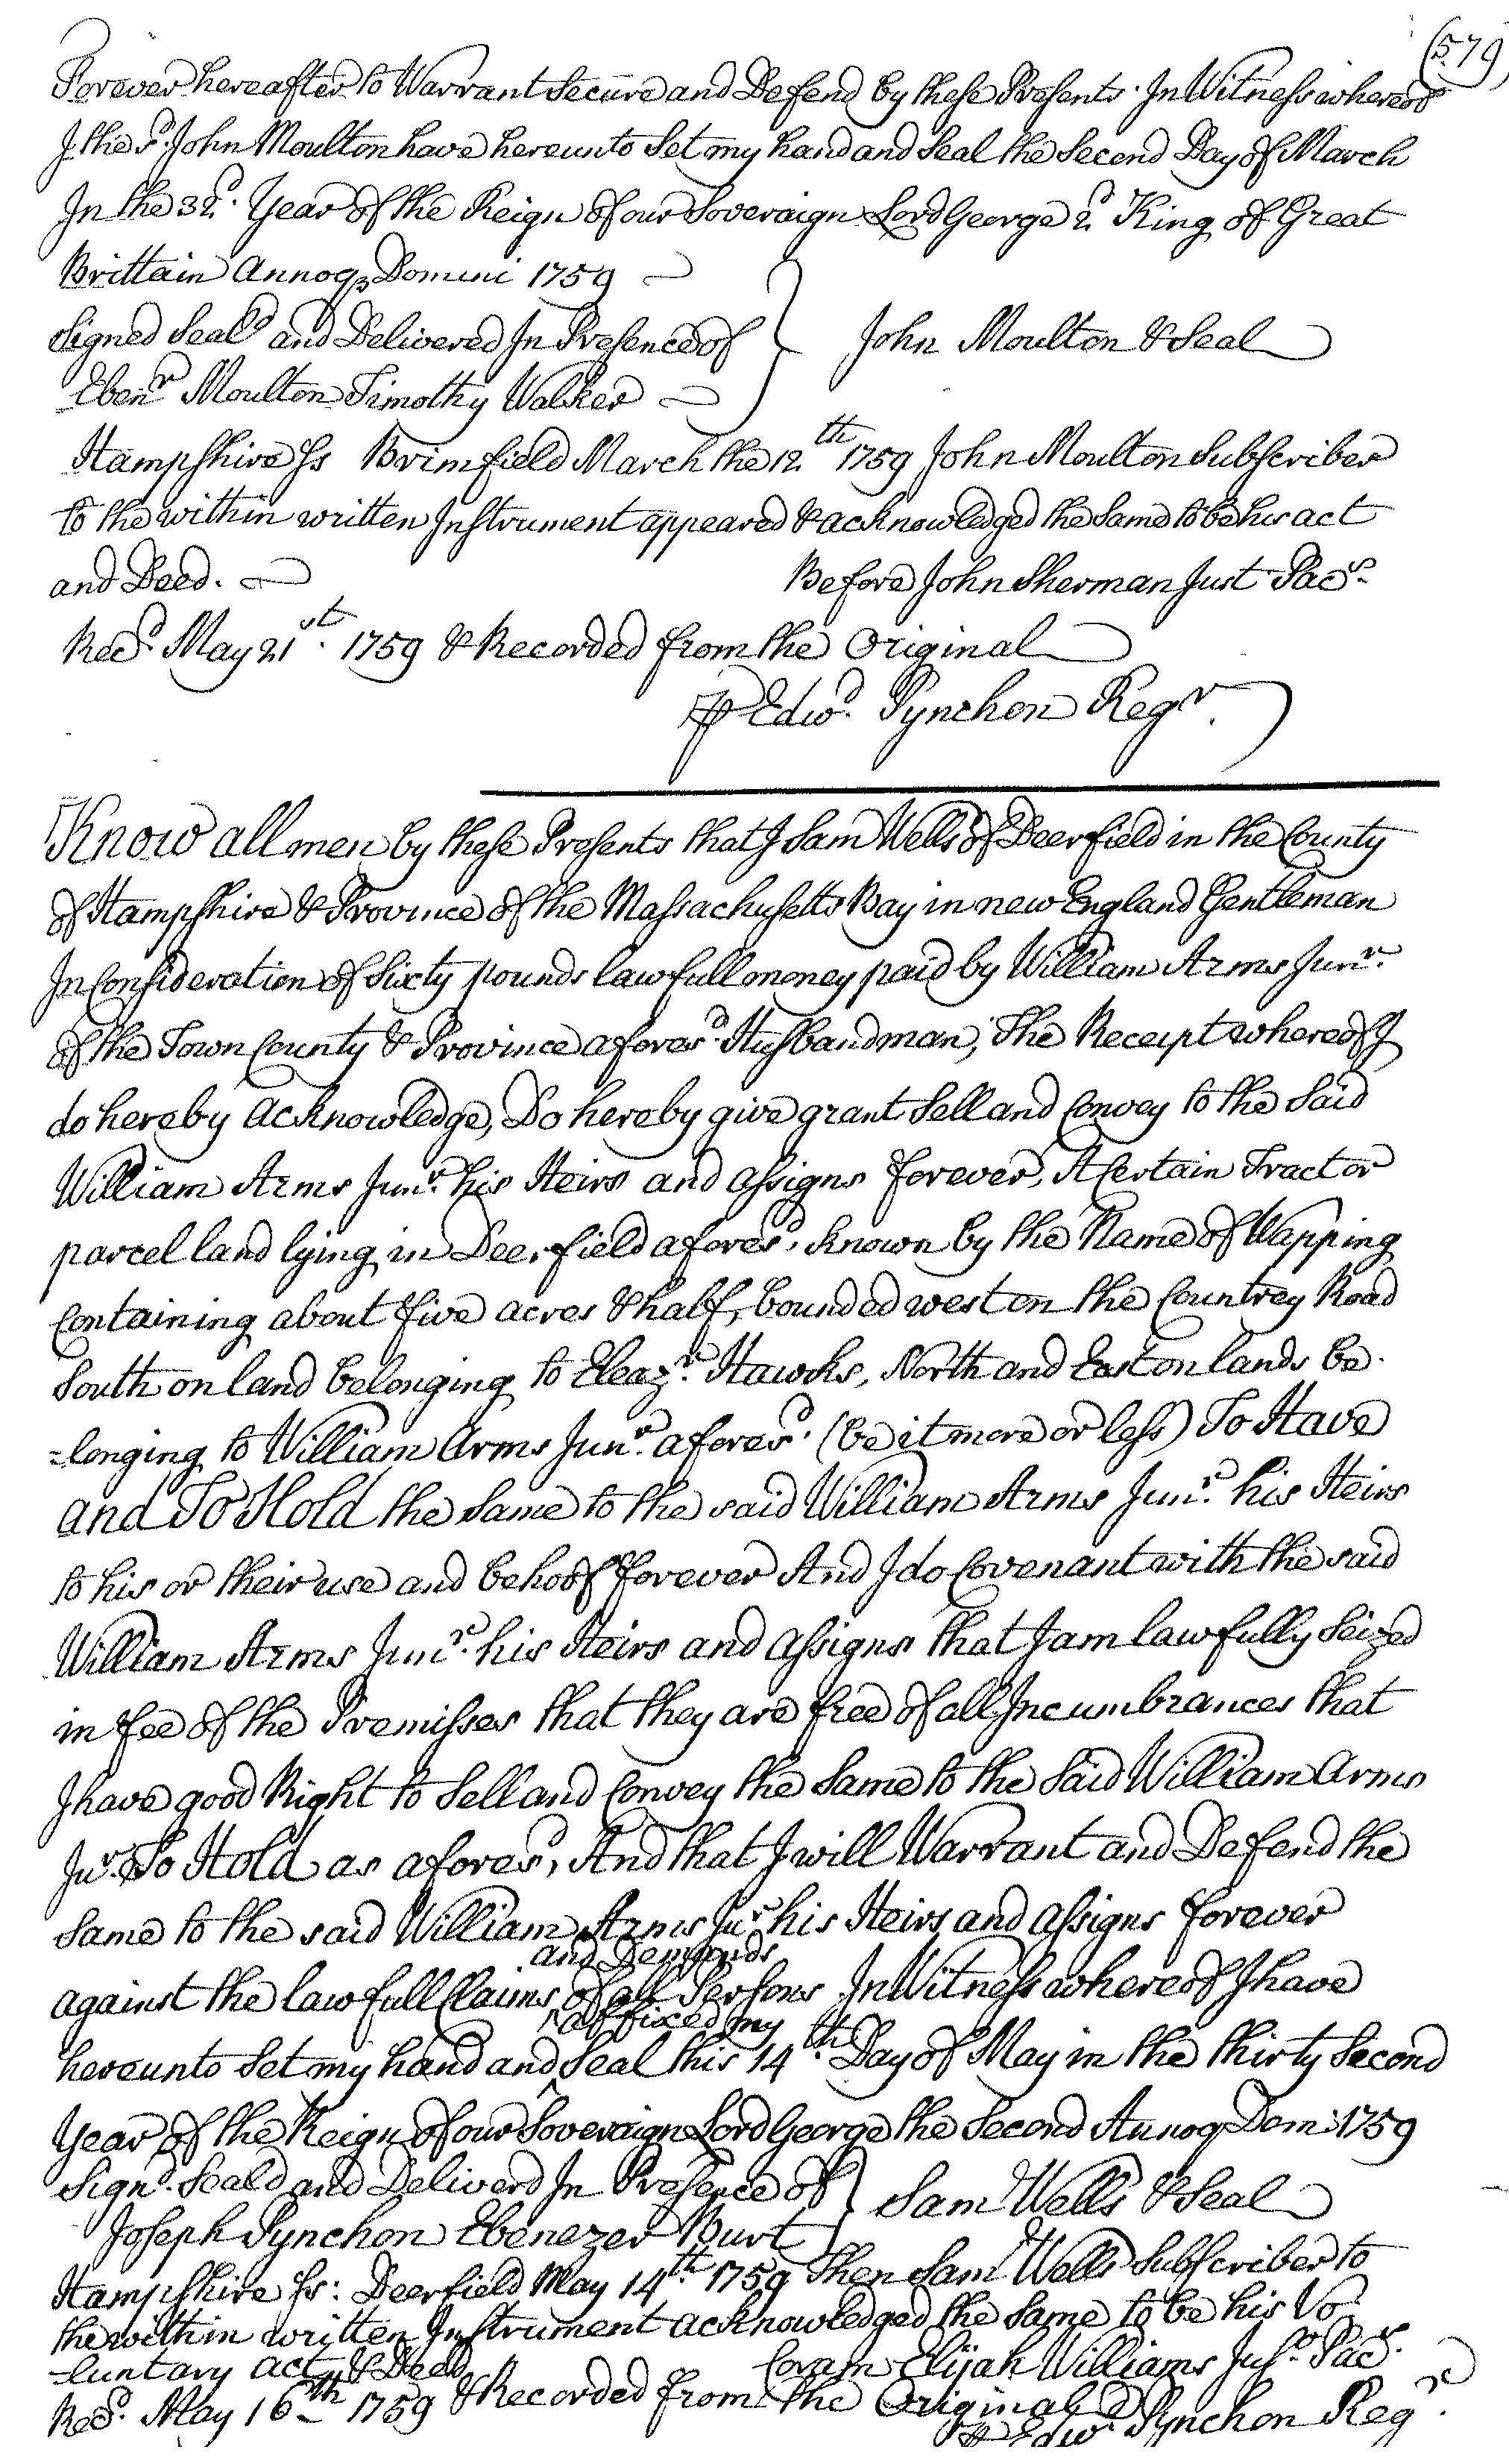 (579)
Forever hereafter to Warrant Secure and Defend by these Presents. In Witness whereof
I the sd. John Moulton have hereunto Set my hand and Seal the Second Day of March
In the 32d. Year of the Reign of our Soveraign Lord George 2d King of Great
Brittain Annoq Domini 1759
Signed Seald and Delivered In Presence of } John Moulton & Seal
Ebenr Moulton Timothy Walker
Hampshire Ss Brimfield March the 12th 1759 John Moulton Subscriber
to the within written Instrument appeared & acknowledged the Same to be his act
and Deed. Before John Sherman Just Pacs.
Recd. May 21st. 1759 & Recorded from the Original
P Edwd. Pynchon Regr.
Know all men by these Presents that I Sam Wells of Deerfield in the County
of Hampshire & Province of the Massachusetts Bay in new England Gentleman
In Consideration of Sixty pounds lawfull money paid by William Arms Junr.
of the Town County & Province aforesd. Husbandman, The Receipt whereof I
do hereby acknowledge, Do hereby give grant Sell and Convey to the Said
William Arms Junr. his Heirs and assigns forever, A Certain Tract or
parcel land lying in Deerfield aforesd, known by the Name of Wapping
Containing about five acres & half, bounded west on the Countrey Road
South on land belonging to Eleazr. Hawks, North and East on lands be-
=longing to William Arms Junr. aforesd. (be it more or less) To Have
and To Hold the Same to the said William Arms Junr. his Heirs
to his or their use and behoof forever And I do Covenant with the said
William Arms Junr. his Heirs and assigns that I am lawfully Seized
in fee of the Premisses that they are free of all Incumbrances that
I have good Right to Sell and Convey the Same to the Said William Arms
Jur. To Hold as aforesd, And that I will Warrant and Defend the
Same to the said William Arms Jur his Heirs and assigns forever
and Demands
against the lawfull Claims of all Persons In Witness whereof I have
affixed my
hereunto Set my hand and Seal this 14th. Day of May in the thirty Second
Year of the Reign of our Soveraign Lord George the Second Annoq Dom: 1759
Signd. Seald and Deliverd In Presence of } Sam Wells & Seal
Joseph Pynchon Ebenezer Burt
Hampshire Ss: Deerfield May 14th. 1759 Then Sam Wells Subscriber to
the within written Instrument acknowledged the Same to be his Vo-
-luntary act & Deed Coram Elijah Williams Juso. Pacs.
Recd. May 16th 1759 & Recorded from the Original
P Edwd. Pynchon Regr.